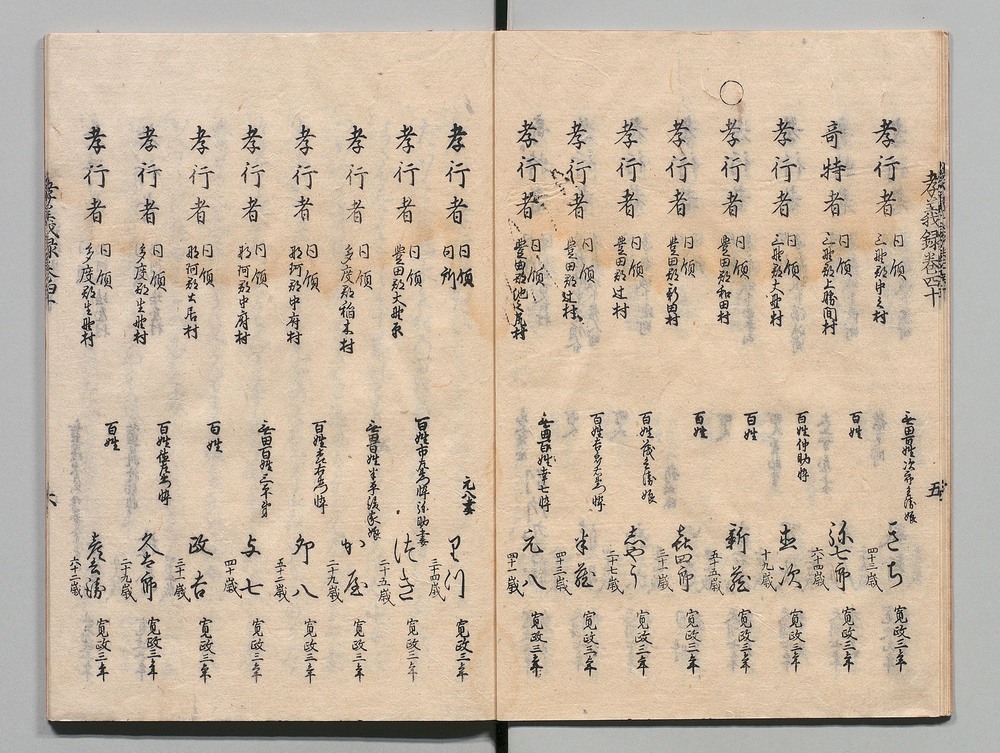 孝義録卷四十
孝行者 同領 三野郡中之村 無田百姓次郎兵衛娘 きち 四十三歳 寛政三年
奇特者 同領 三野郡上勝間村 百姓 弥七郎 六十四歳 寛政三年
孝行者 同領 三野郡大野村 百姓仲助悴 直次 十九歳 寛政三年
孝行者 同領 豊田郡和田村 百姓 新蔵 五十五歳 寛政三年
孝行者 同領 豊田郡新田村 百姓 喜四郎 三十一歳 寛政三年
孝行者 同領 豊田郡辻村 百姓 娘 しやう 二十七歳 寛政三年
孝行者 同領 豊田郡辻村 百姓 悴 半蔵 四十三歳 寛政三年
孝行者 同領 豊田郡池之尻村 無田百姓幸七悴 元八 四十一歳 寛政三年
五
孝行者 同領 同所 元八妻 りつ 三十四歳 寛政三年
孝行者 同領 豊田郡大野原 百姓市左衛門悴弥助妻 つき 二十五歳 寛政三年
孝行者 同領 多度郡稲木村 無田百姓半平後家娘 かや 二十九歳 寛政三年
孝行者 同領 那珂郡中府村 百姓 悴 卯八 五十二歳 寛政三年
孝行者 同領 那珂郡中府村 無田百姓三平弟 与七 四十歳 寛政三年
孝行者 同領 那珂郡 村 百姓 政吉 三十一歳 寛政三年
孝行者 同領 多度郡生野村 百姓 悴 久太郎 二十九歳 寛政三年
孝行者 同領 多度郡生野村 百姓 彦兵衛 六十二歳 寛政三年
孝義録卷四十
六